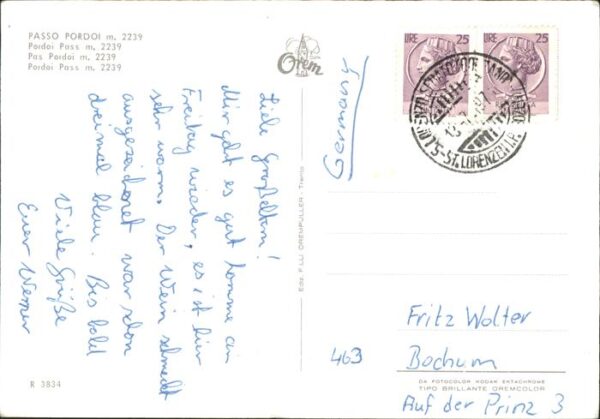 PASSO PORDOI m. 2239
Pordoi Pass m. 2239
Pas Pordoi m. 2239
Pordoi Pass m. 2239
Orem
LIRE 25
LIRE 25
S-ST. LORENZEN
Germania
Liebe Großeltern!
Mir geht es gut komme am
Freitag wieder, es ist hier
sehr warm. Der Wein schmeckt
ausgezeichnet war schon
dreimal blau. Bis bald
Viele Grüße
Euer Werner
Ediz. F.LLI OREMPULLER - Trento
Fritz Wolter
463 Bochum
DA FOTOCOLOR KODAK EKTACHROME
TIPO BRILLANTE OREMCOLOR
Auf der Prinz 3
R 3834